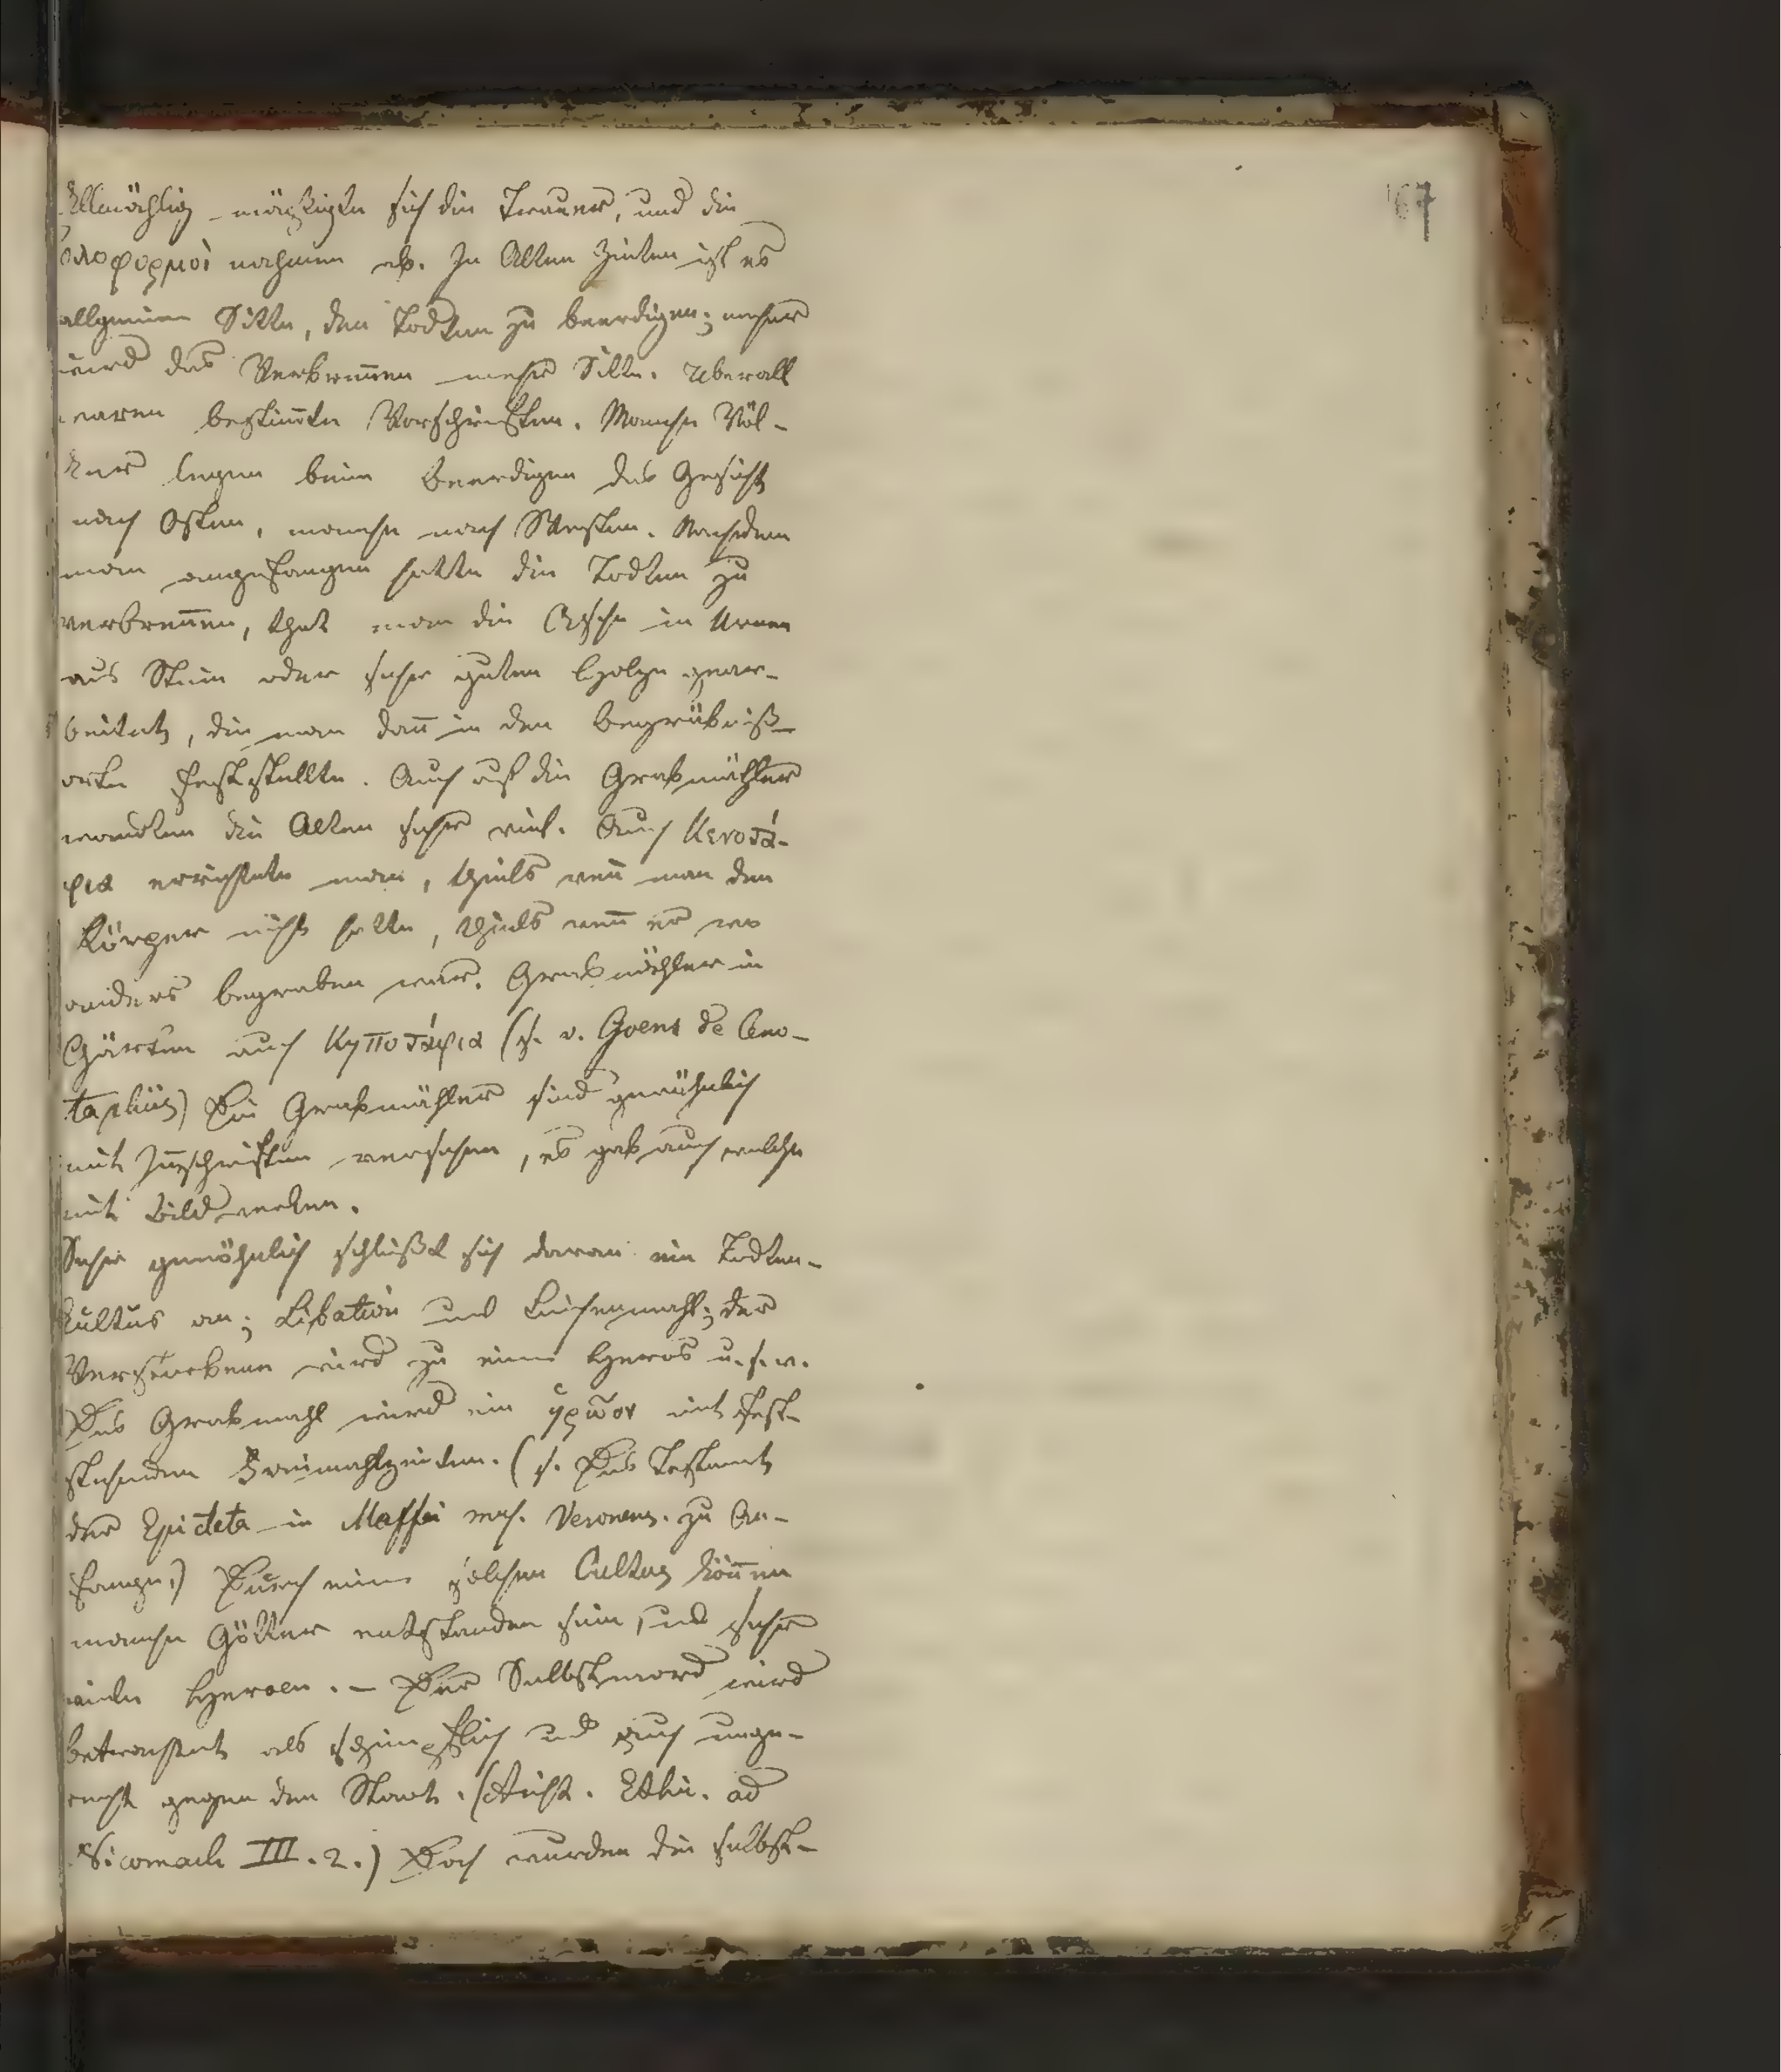 167
Allmählig mäßigte sich die Trauer, und die
ὀλοφυρμοὶ nahmen ab. In Alten Zeiten ist es
allgemein Sitte, den Todten zu beerdigen; nachher
wird das Verbreñen mehr Sitte. Uberall
waren bestim̄te Vorschriften. Manche Völ-
ker legen beim Beerdigen das Gesicht
nach Osten, manche nach Westen. Nachdem
man angefangen hatte die Todten zu
verbreñen, that man die Asche in Urnen
aus Stein oder sehr gutem Holze gear-
beitet, die man dañ in den Begräbniß-
orten feststellte. Auch auf die Grabmähler
wendten die Alten sehr viel. Auch Κενοτά-
φια errichtete man, theils weñ man den
Körper nicht hatte, theils weñ er wo
anders begraben war. Grabmähler in
Gärten auch Κηποτάφια (s. v. Goens de Ceno-
taphiis) Die Grabmähler sind gewöhnlich
mit Iñschriften versehen, es gab auch welche
mit Bildwerken.
Sehr gewöhnlich schließt sich daran ein Todten-
kultus an; Libation und Leichenmahl; der
Verstorbene wird zu einem Heros u. s. w.
Das Grabmahl wird ein ἡρῷον mit fest-
stehenden (s. Das Testament
der Epicteta in Maffei mus. Veronens. zu An-
fange.) Durch einen solchen Cultus köñen
manche Götter entstanden sein, und sehr
viele Heroen. – Der Selbstmord wird
betrachtet als schimpflich und auch unge-
recht gegen den Staat. (Arist. Ethic. ad
Nicomach III. 2.) Doch wurden die Selbst-